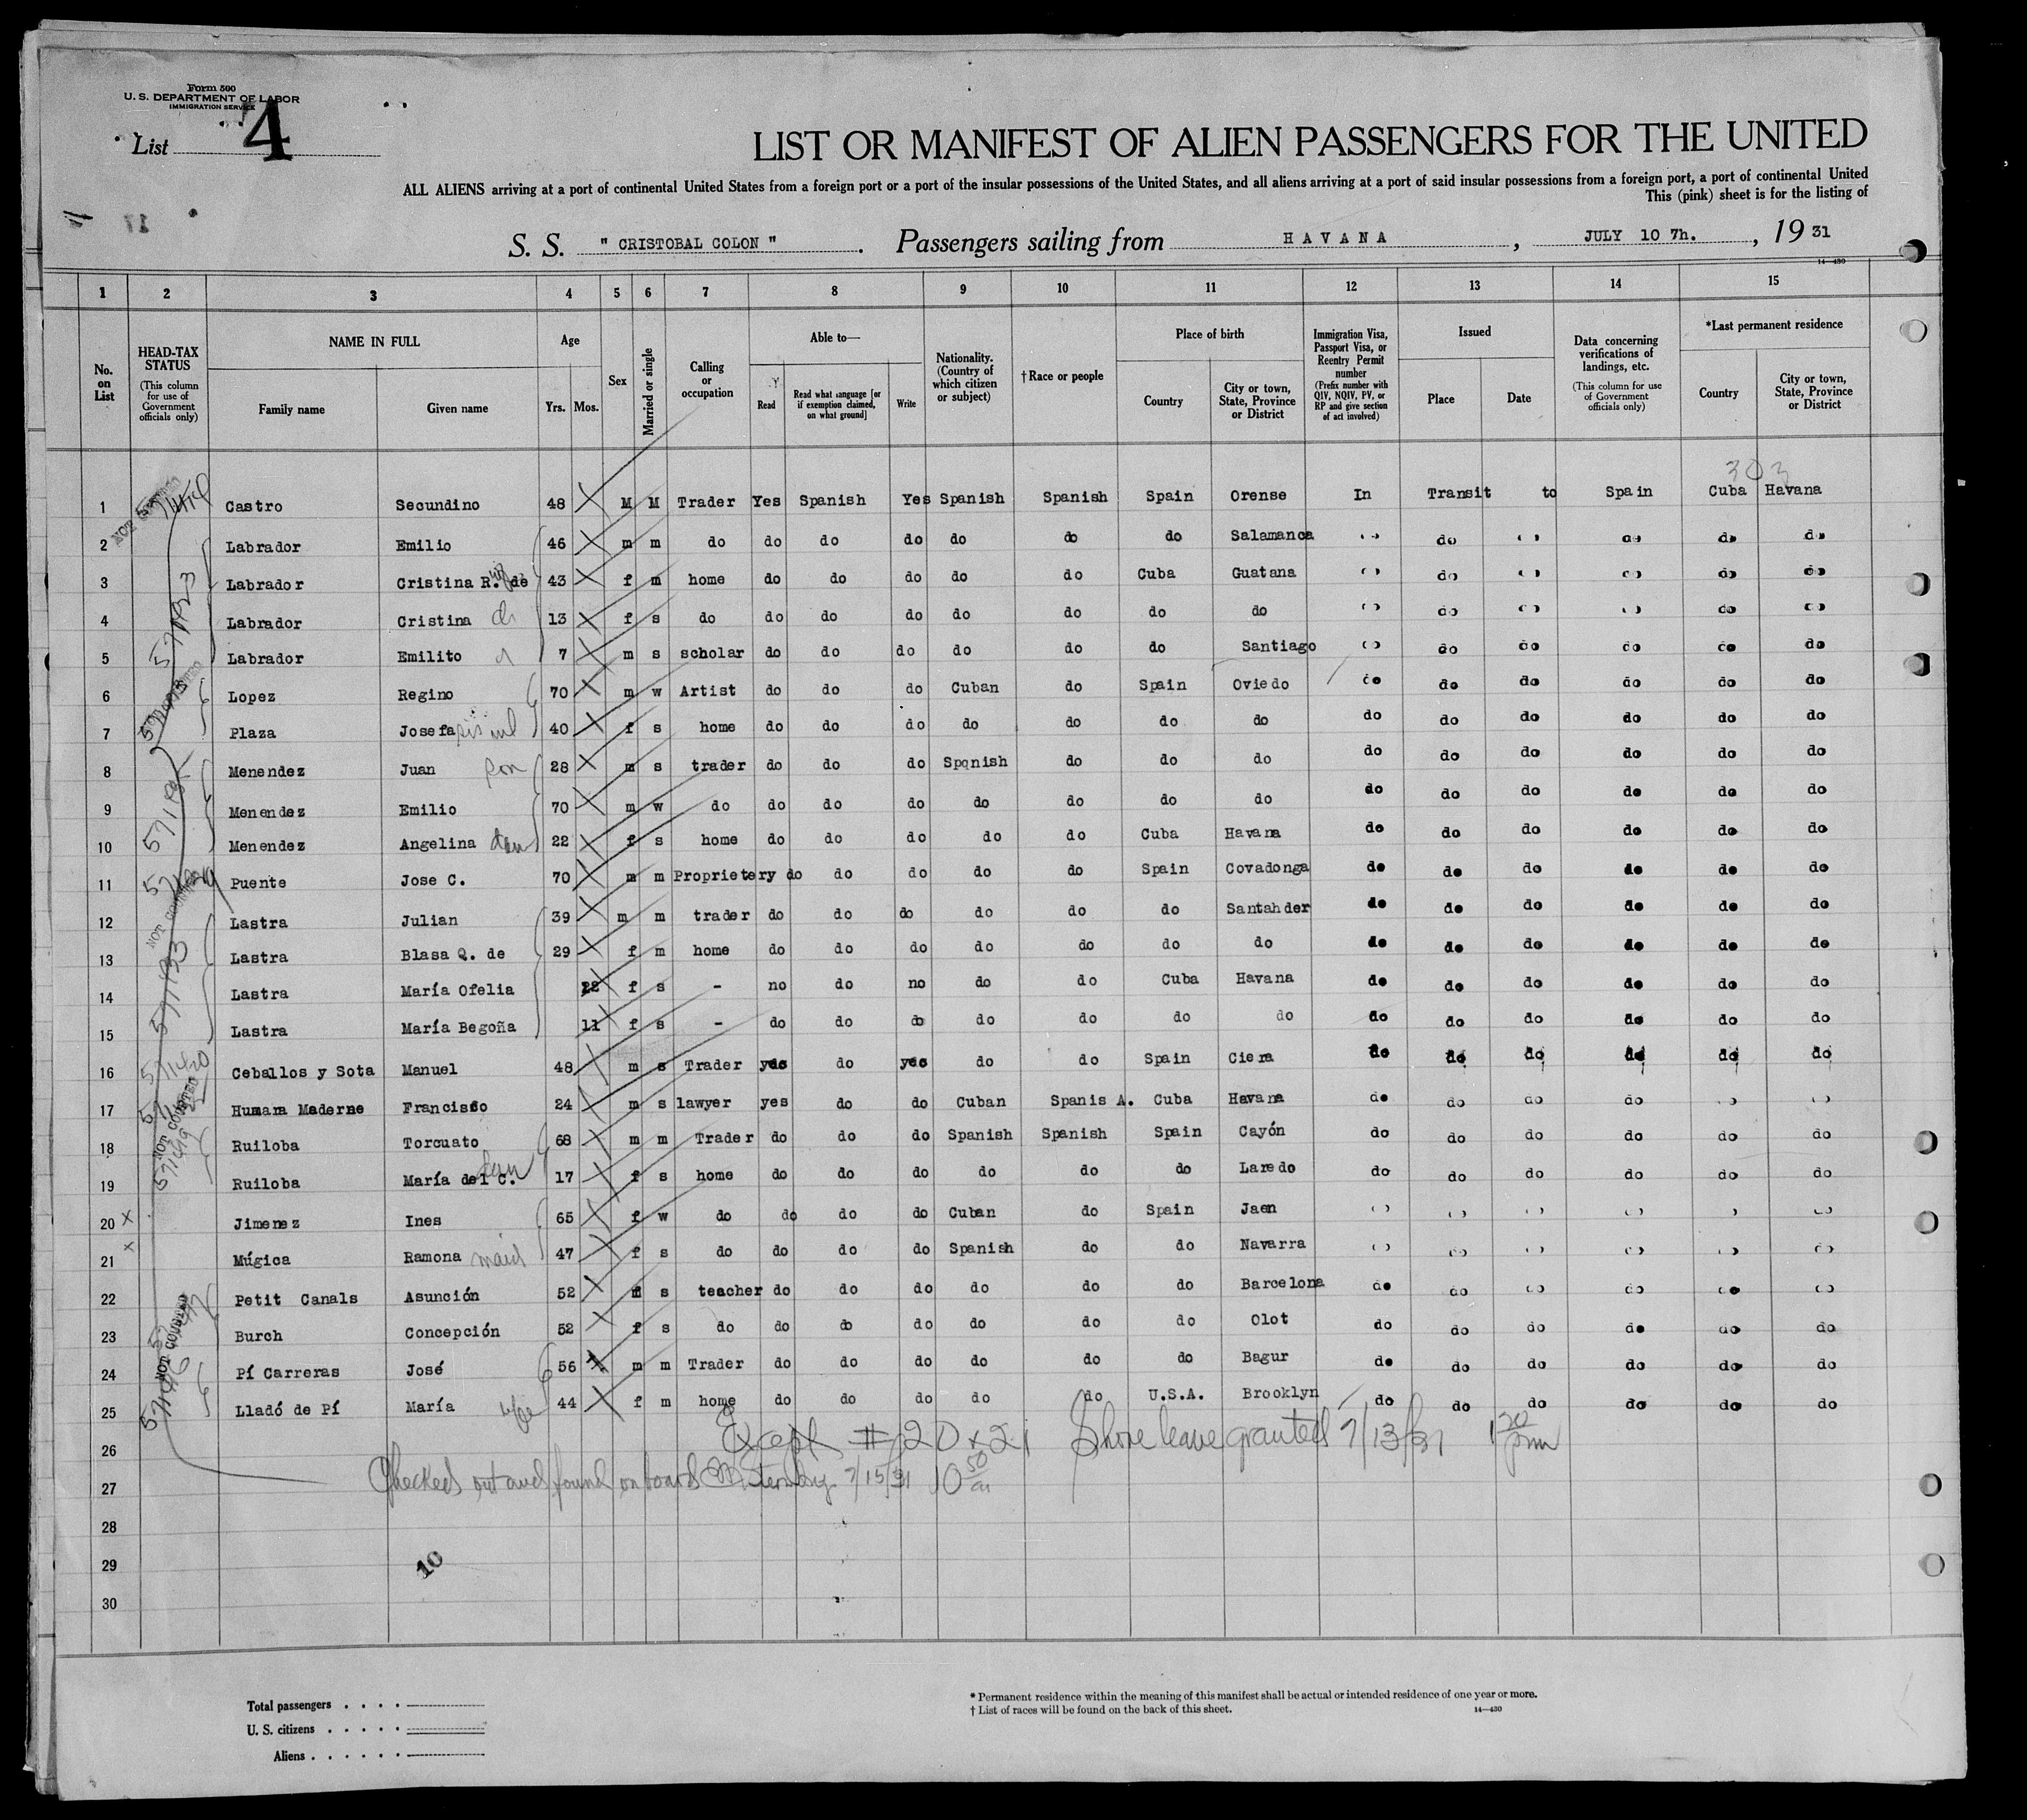 Form 500
U. S. DEPARTMENT OF LABOR
IMMIGRATION SERVICE
List 4
LIST OR MANIFEST OF ALIEN PASSENGERS FOR THE UNITED
ALL ALIENS arriving at a port of continental United States from a foreign port or a port of the insular possessions of the United States, and all aliens arriving at a port of said insular possessions from a foreign port, a port of continental United
This (pink) sheet is for the listing of
17
S. S. " CRISTOBAL COLON ". Passengers sailing from HAVANA, JULY 10 7h., 19 31
14—430
1 2 3 4 5 6 7 8 9 10 11 12 13 14 15
No. on List
HEAD-TAX STATUS (This column for use of Government officials only)
NAME IN FULL
Family name Given name
Age
Yrs. Mos.
Sex
Married or single
Calling or occupation
Able to—
Read Read what language [or if exemption claimed, on what ground] Write
Nationality. (Country of which citizen or subject)
†Race or people
Place of birth
Country City or town, State, Province or District
Immigration Visa, Passport Visa, or Reentry Permit number (Prefix number with QIV, NQIV, PV, or RP and give section of act involved)
Issued
Place Date
Data concerning verifications of landings, etc. (This column for use of Government officials only)
*Last permanent residence
Country City or town, State, Province or District
303
1 Castro Secundino 48 M M Trader Yes Spanish Yes Spanish Spanish Spain Orense In Transit to Spain Cuba Havana
2 Labrador Emilio 46 m m do do do do do do do Salamanca " do " do do do
3 Labrador Cristina R. de wf 43 f m home do do do do do Cuba Guatana " do " do do do
4 Labrador Cristina d 13 f s do do do do do do do do " do " " do do
5 Labrador Emilito 7 m s scholar do do do do do do Santiago " do do do do do
6 Lopez Regino 70 m w Artist do do do Cuban do Spain Oviedo do do do do do do
7 Plaza Josefa sis inl 40 f s home do do do do do do do do do do do do do
8 Menendez Juan son 28 m s trader do do do Spanish do do do do do do do do do
9 Menendez Emilio 70 m w do do do do do do do do do do do do do do
10 Menendez Angelina dau 22 f s home do do do do do Cuba Havana do do do do do do
11 Puente Jose C. 70 m m Proprietery do do do do do Spain Covadonga do do do do do do
12 Lastra Julian 39 m m trader do do do do do do Santahder do do do do do do
13 Lastra Blasa Q. de 29 f m home do do do do do do do do do do do do do
14 Lastra María Ofelia 22 f s - no do no do do Cuba Havana do do do do do do
15 Lastra María Begoña 11 f s - do do do do do do do do do do do do do
16 Ceballos y Sota Manuel 48 m s Trader yes do yes do do Spain Ciera do do do do do do
17 Humara Maderne Francisco 24 m s lawyer yes do do Cuban Spanis A. Cuba Havana do do do do " "
18 Ruiloba Torcuato 68 m m Trader do do do Spanish Spanish Spain Cayón do do do do do do
19 Ruiloba María del C. dau 17 f s home do do do do do do Laredo do do do do do do
20 x Jimenez Ines 65 f w do do do do Cuban do Spain Jaen " " " " " "
21 x Múgica Ramona maid 47 f s do do do do Spanish do do Navarra " " " " " "
22 Petit Canals Asunción 52 f s teacher do do do do do do Barcelona do do " do do "
23 Burch Concepción 52 f s do do do do do do do Olot do do do do do do
24 Pí Carreras José 56 m m Trader do do do do do do Bagur do do do do do do
25 Lladó de Pí María wife 44 f m home do do do do do U.S.A. Brooklyn do do do do do do
26 Except # 20 x 21 Shore leave granted 7/13/31 1 30 pm
27 Checked out and found on board 7/15/31 10 50 am
28
29
30
NOT COUNTED
10
Total passengers . . . .
U. S. citizens . . . . .
Aliens . . . . . .
* Permanent residence within the meaning of this manifest shall be actual or intended residence of one year or more.
† List of races will be found on the back of this sheet. 14—430